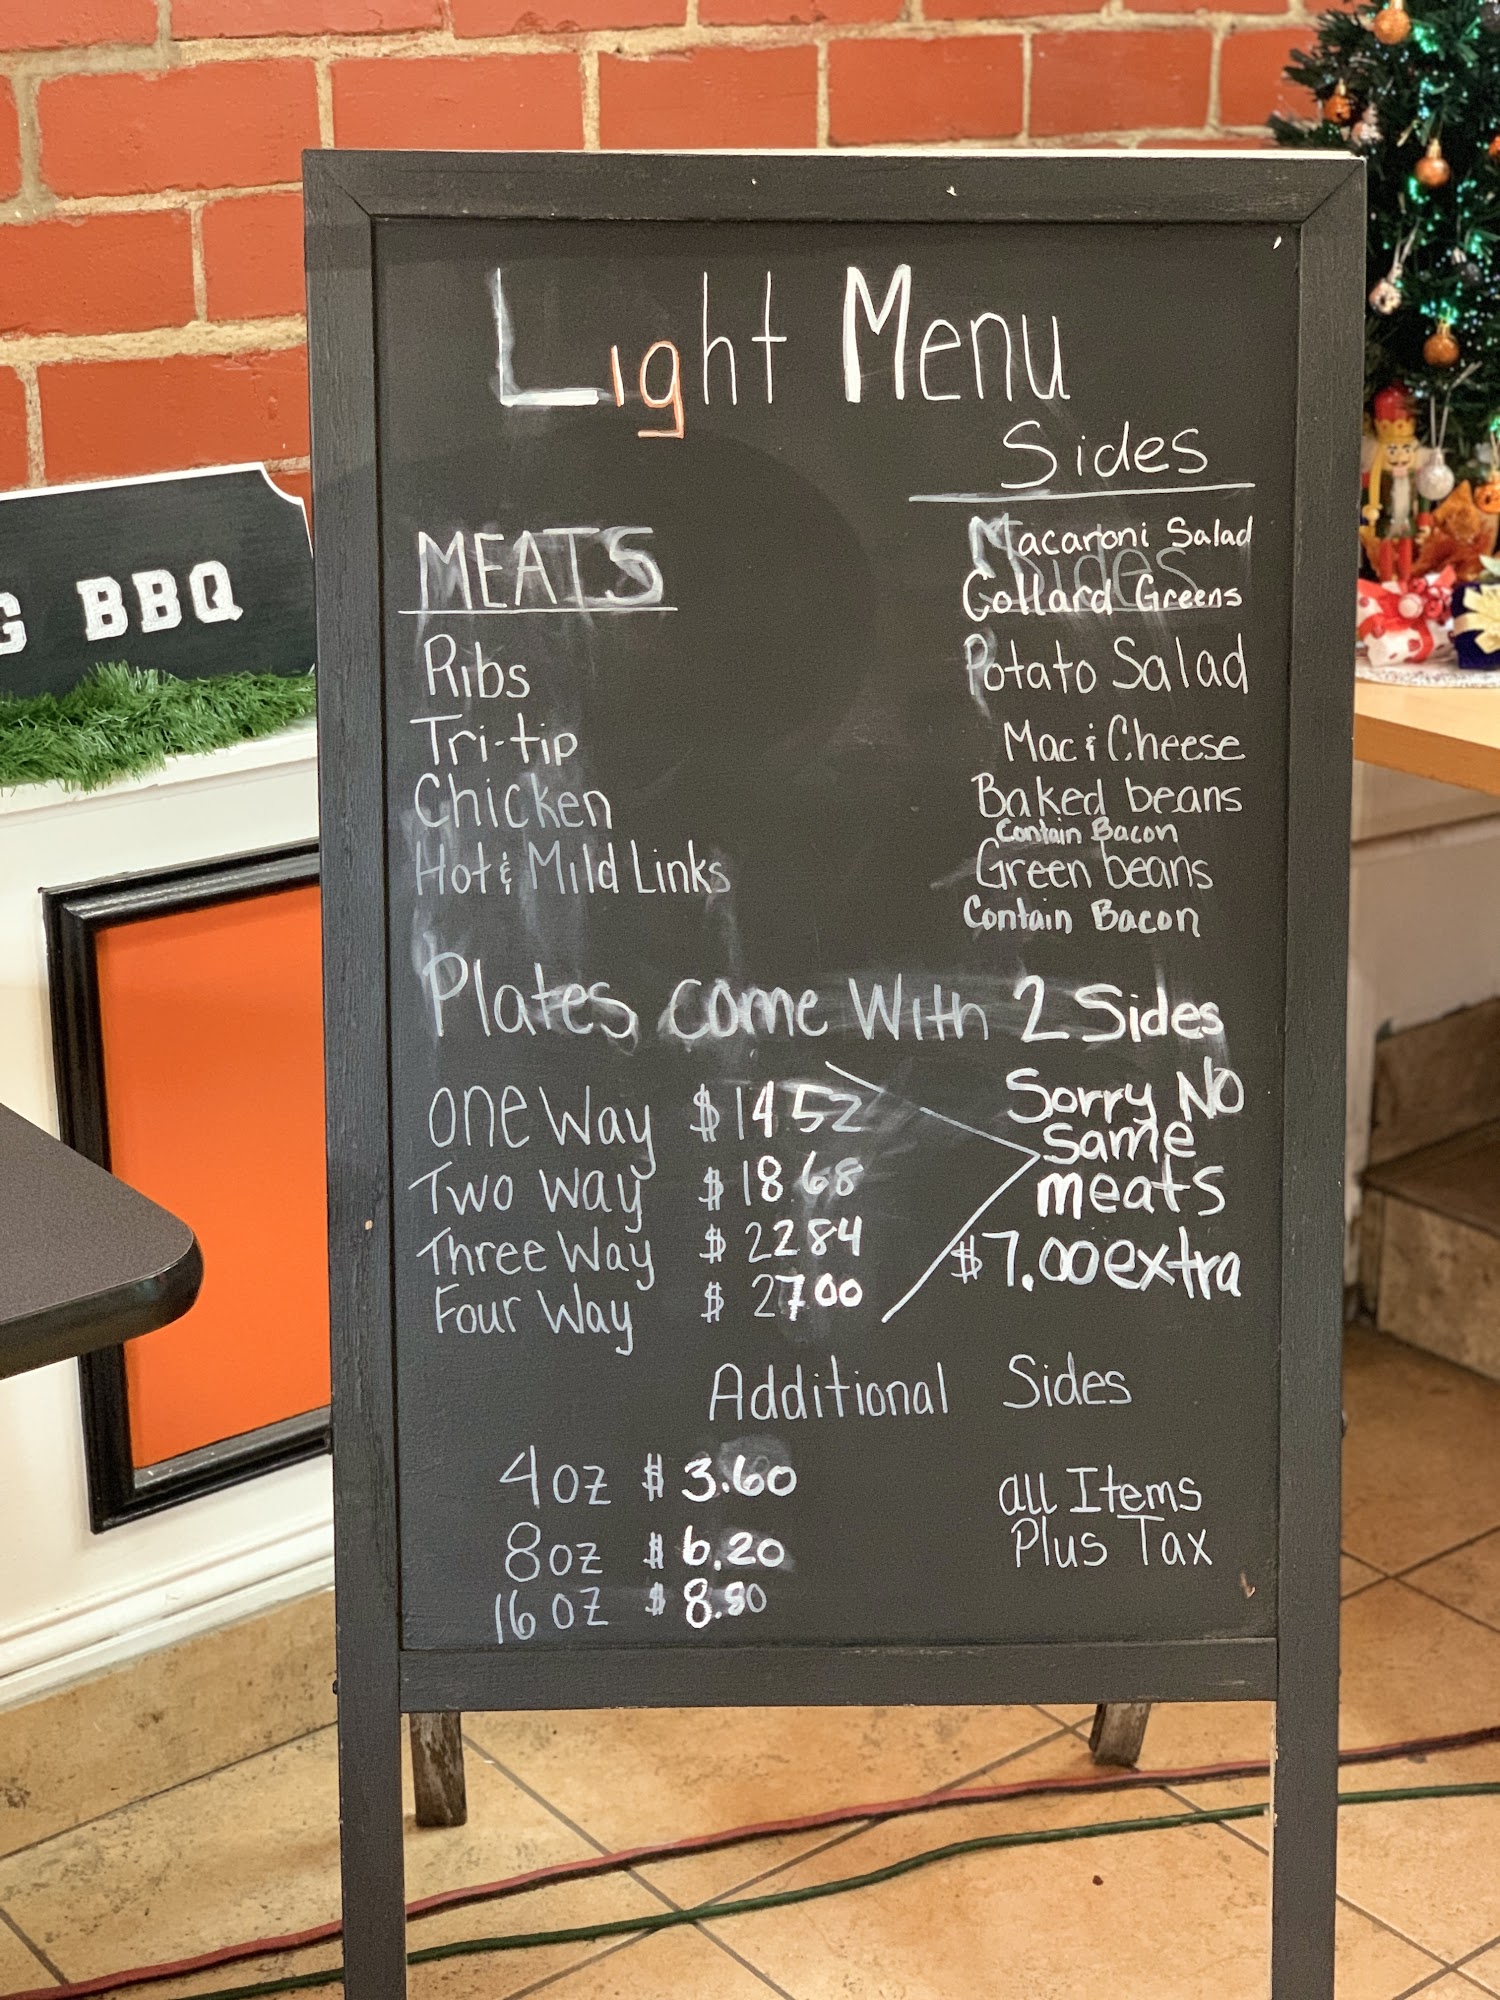 Light Menu
Sides
MEATS
Macaroni Salad
Collard Greens
Ribs
Potato Salad
Tri-tip
Mac & Cheese
Chicken
Baked beans
Contain Bacon
Hot & Mild Links
Green beans
Contain Bacon
Plates come With 2 Sides
One Way $14 52
Two Way $18.68
Three Way $22 84
Four Way $27 00
Sorry NO
same
meats
$7.00 extra
Additional Sides
4oz $3.60
8oz $6.20
16 oz
all Items
Plus Tax
G BBQ